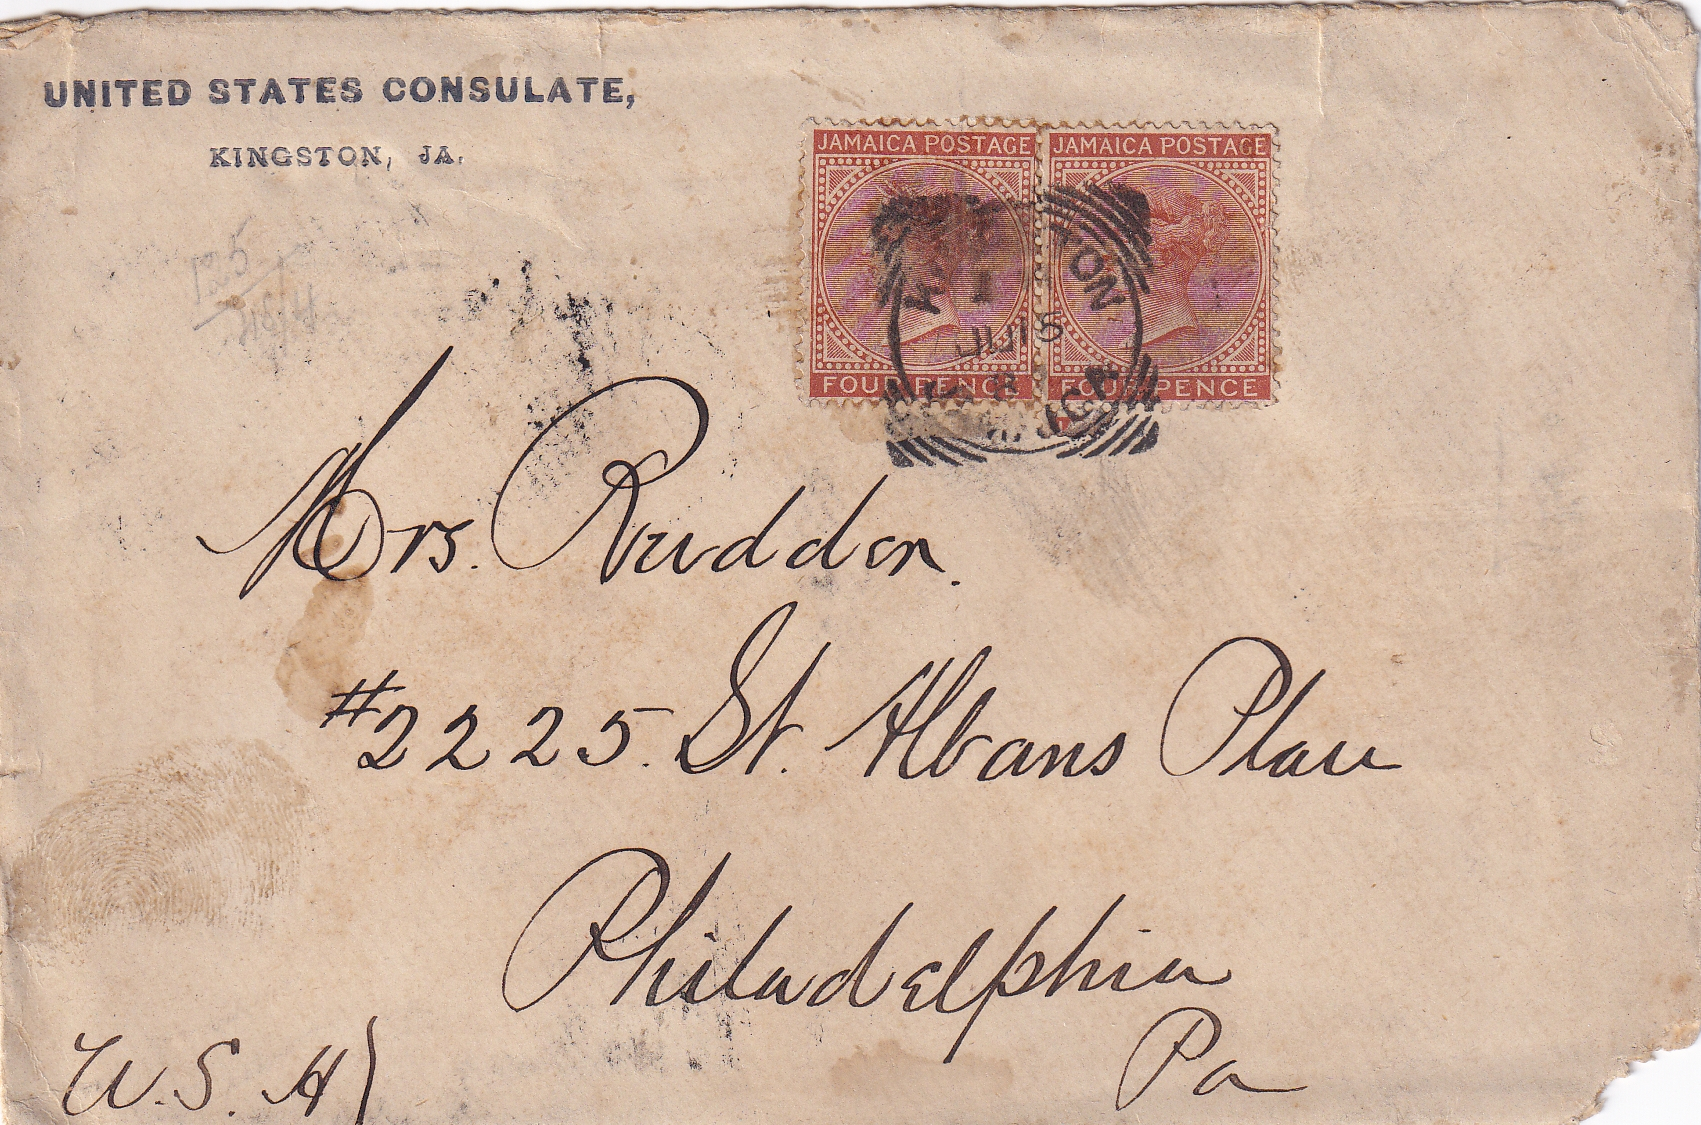 UNITED STATES CONSULATE,
KINGSTON, JA.
JAMAICA POSTAGE JAMAICA POSTAGE
JU 18
FOUR PENCE FOUR PENCE
Mrs. Rudden.
#2225. St. Albans Place
Philadelphia
Pa
U.S.A